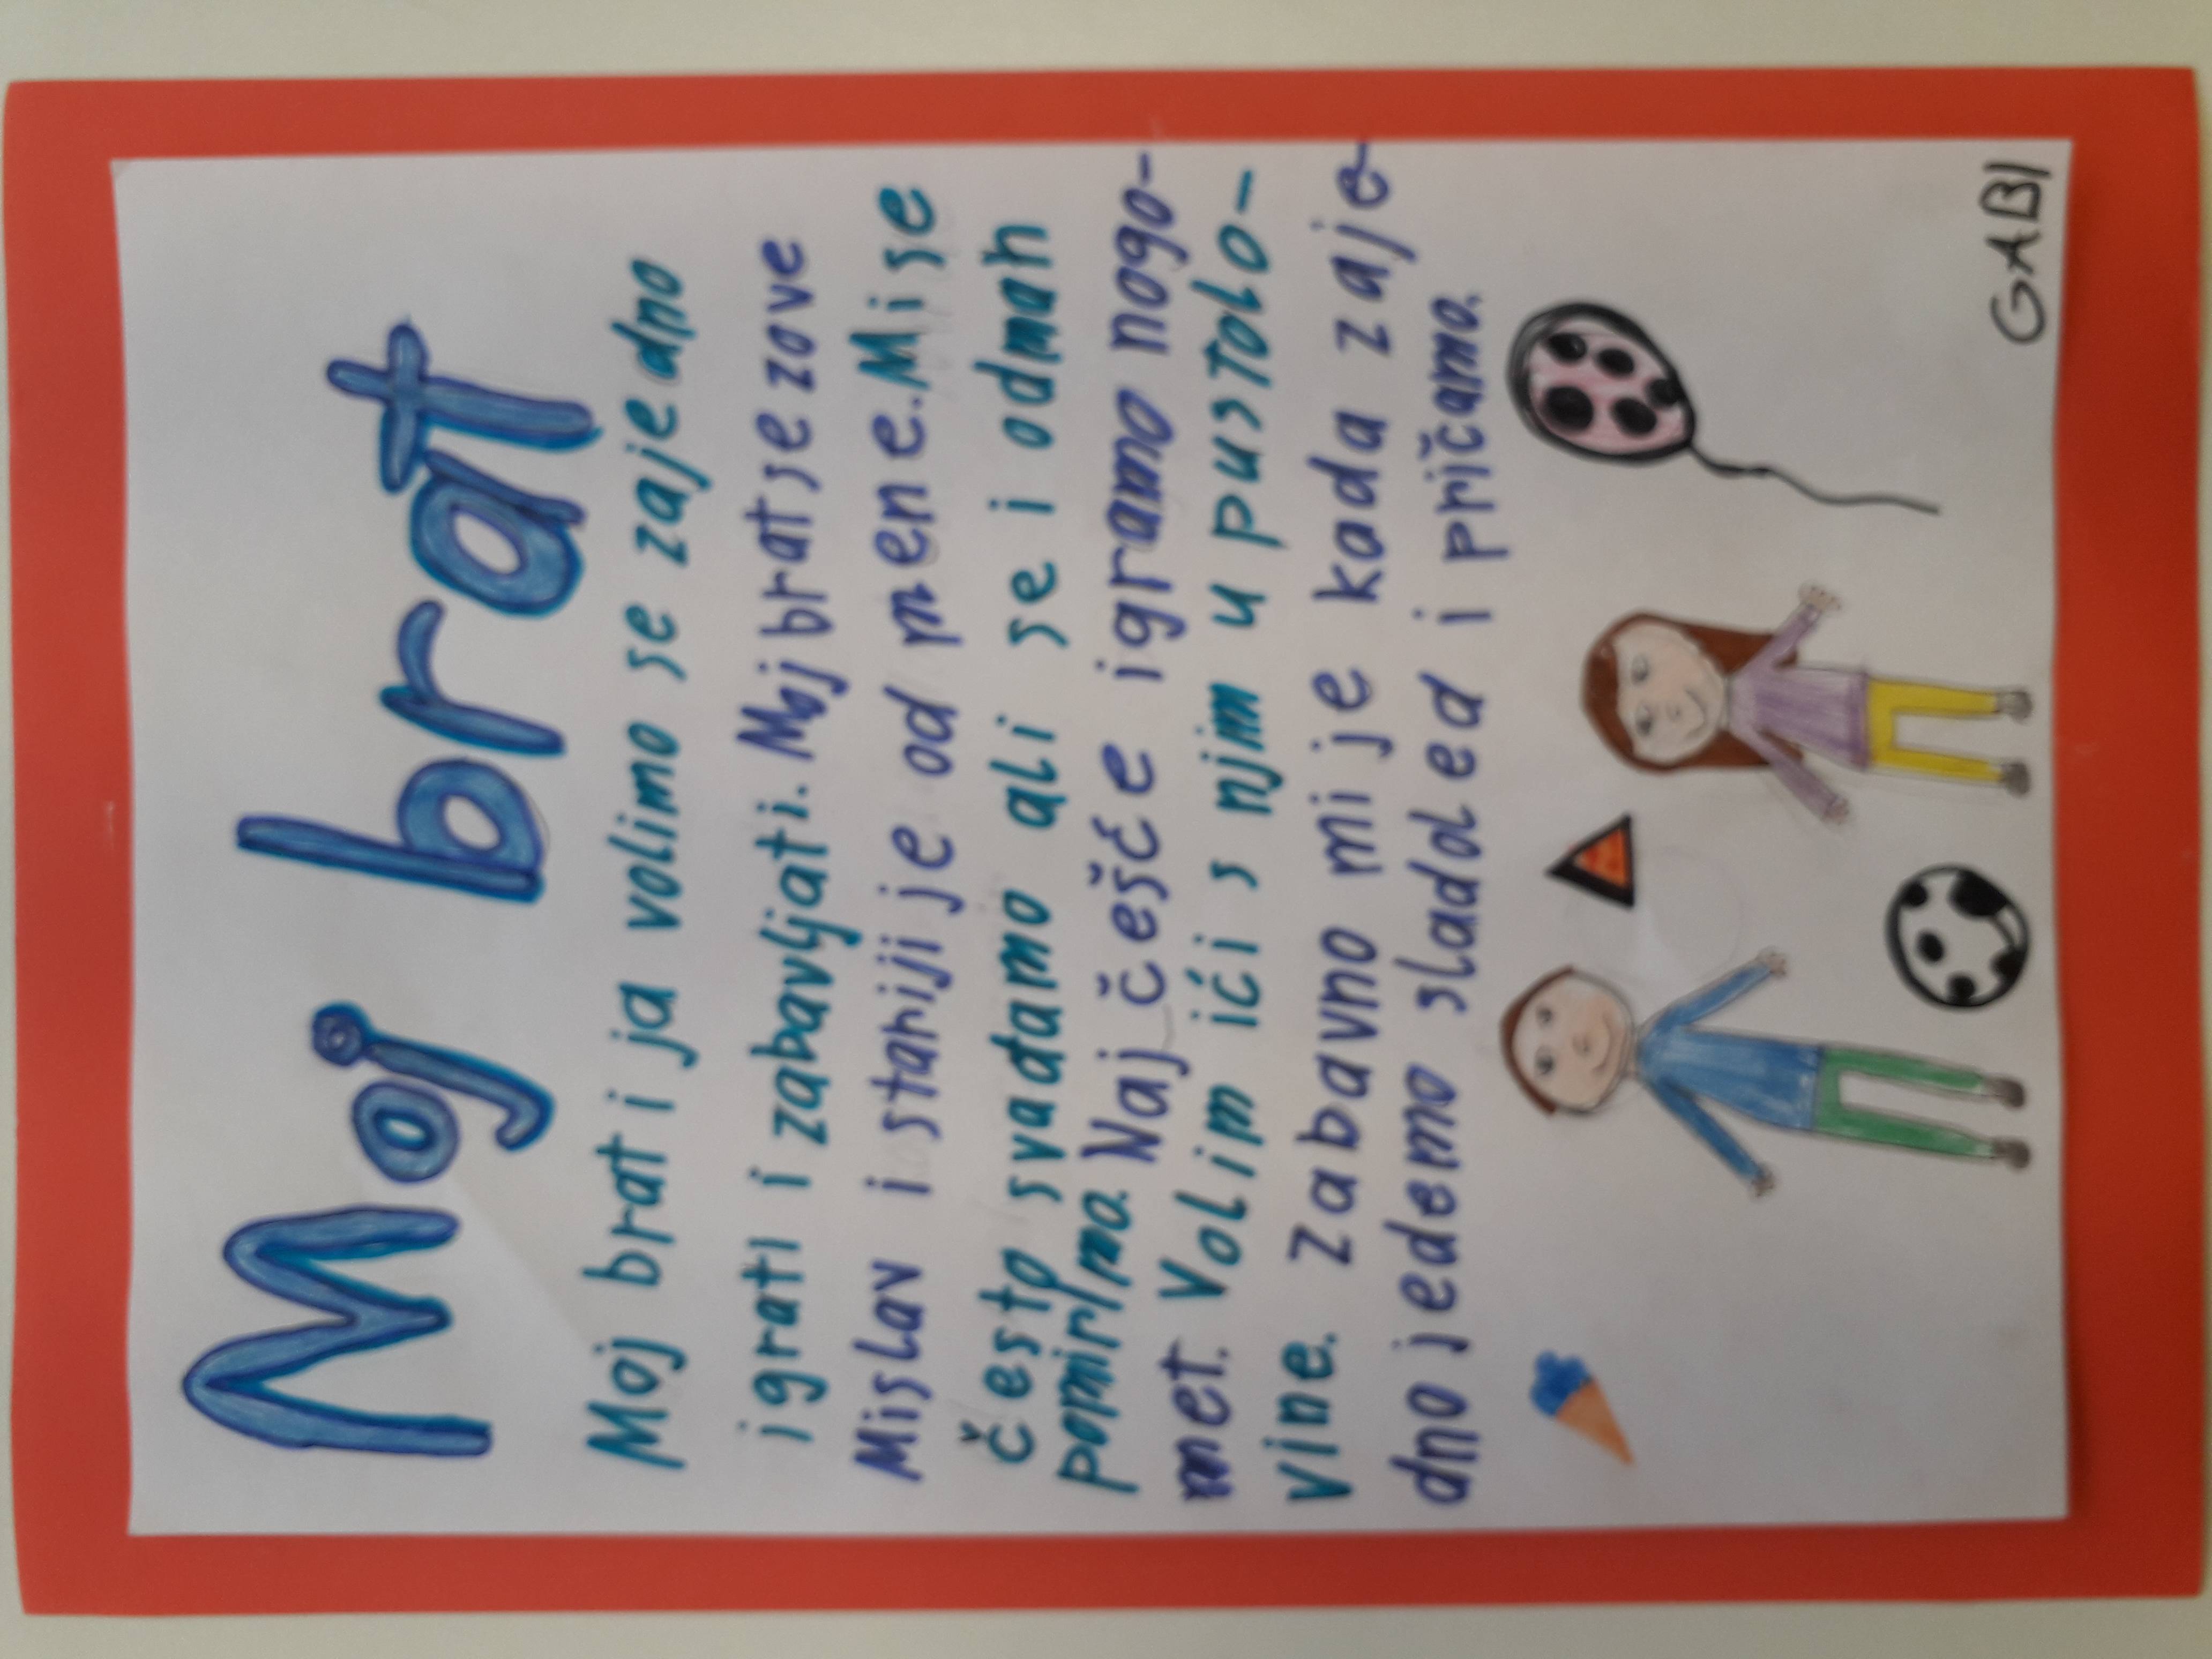 Moj brat
Moj brat i ja volimo se zajedno
igrati i zabavljati. Moj brat se zove
Mislav i stariji je od mene. Mi se
često svađamo ali se i odmah
pomirimo. Najčešće igramo nogo-
met. Volim ići s njim u pustolo-
vine. Zabavno mi je kada zaje-
dno jedemo sladoled i pričamo.
GABI